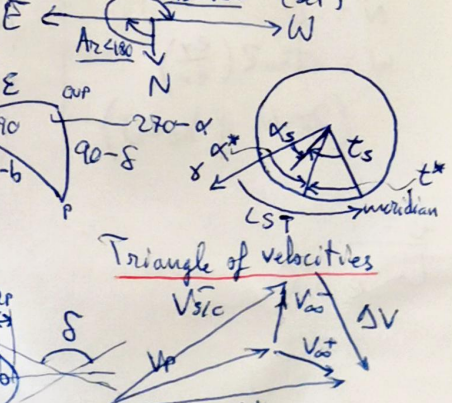 E W
Az<180
N
E QNP
90 270-α
-b 90-δ
P
αs ts
α* t*
γ
LST meridian
Triangle of velocities
V⁻s/c V∞⁻
δ ΔV
Vp V∞⁺